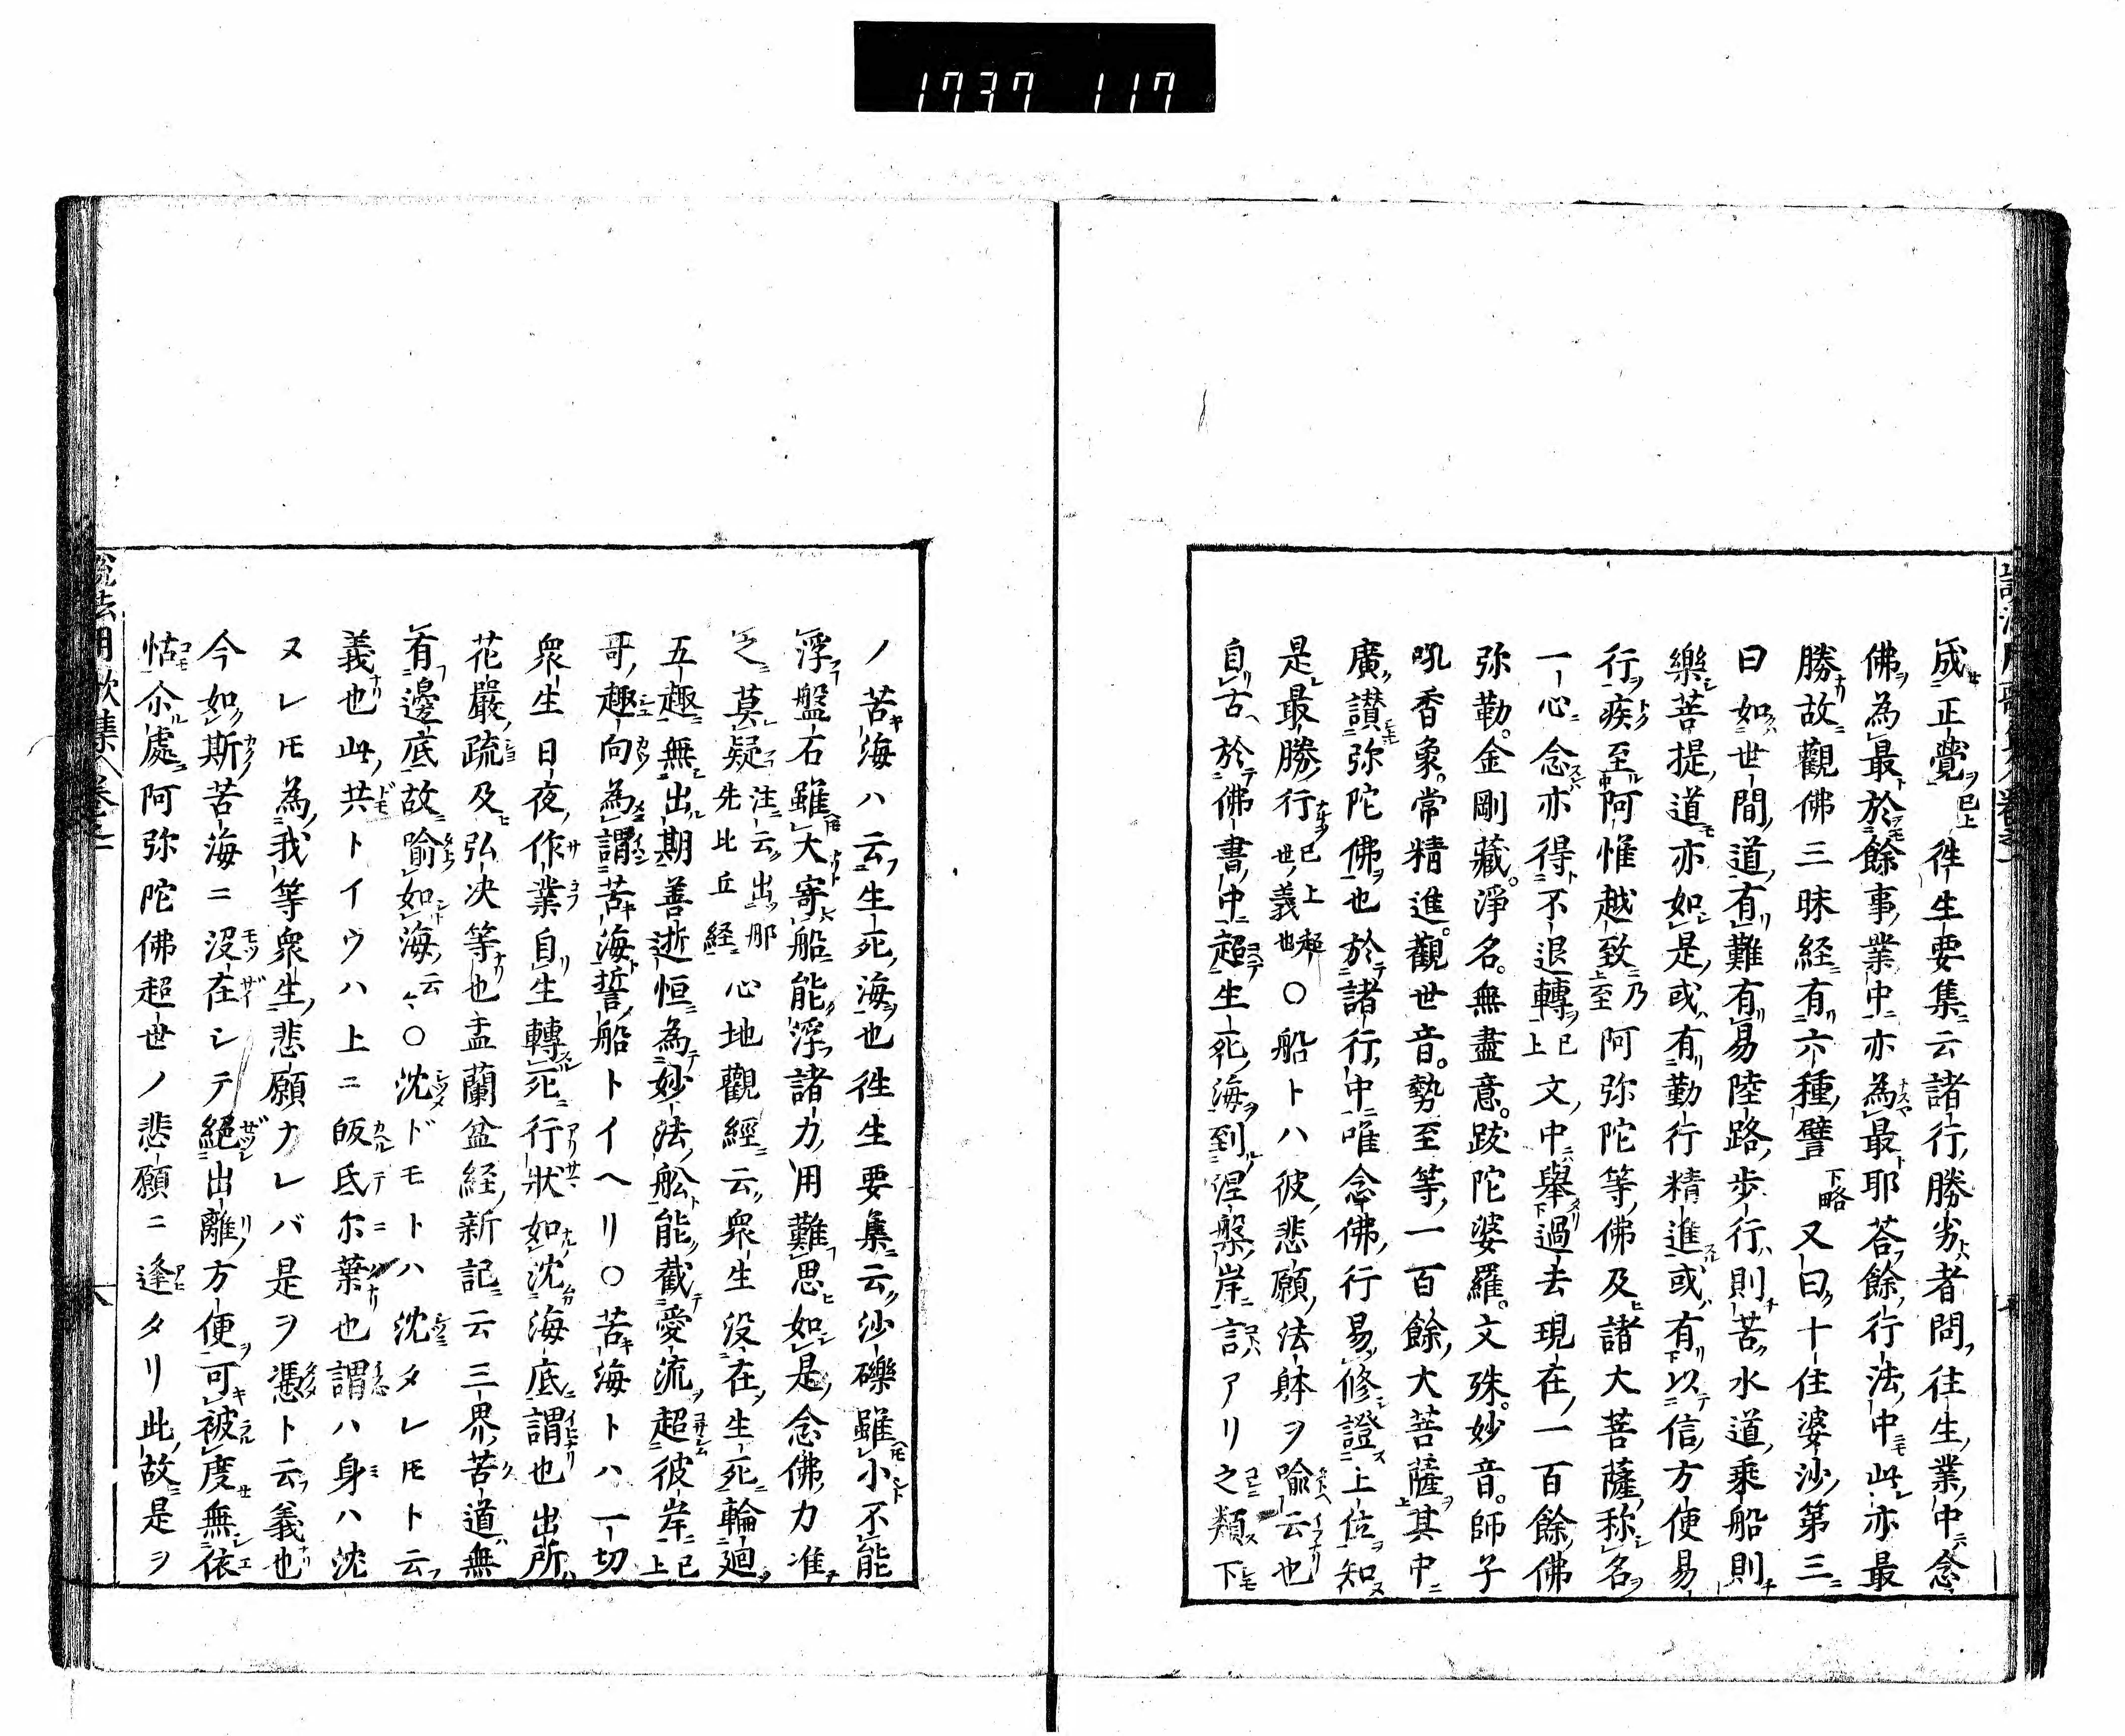 1737 117
成正覺已上徃生要集云諸行勝劣者問往生業中念
佛為最於餘事業中亦為最耶荅餘行法中此亦最
勝故觀佛三昧経有六種譬下略又曰十住婆沙第三
曰如世間道有難有易陸路歩行則苦水道乘船則
樂菩提道亦如是或有勤行精進或有以信方便易
行疾至阿惟越致乃至阿弥陀等佛及諸大菩薩称名
一心念亦得不退轉已上文中舉過去現在一百餘佛
弥勒。金剛藏。淨名。無盡意。跋陀婆羅。文殊。妙音。師子
吼香象。常精進。觀世音。勢至等一百餘大菩薩其中
廣讃弥陀佛也於諸行中唯念佛行易修證上位知
是最勝行已上超世義也〇船トハ彼悲願法躰ヲ喩云也
自古於佛書中超生死海到涅槃岸言アリ之類下
ノ苦海ハ云生死海也徃生要集云沙礫雖小不能
浮盤石雖大寄船能浮諸力用難思如是念佛力准
之莫疑注云出那先比丘経心地觀經云衆生没在生死輪廻
五趣無出期善逝恒為妙法舩能截愛流超彼岸已上
哥趣向為謂苦海誓船トイヘリ〇苦海トハ一切
衆生日夜作業自生轉死行狀如沈海底謂也出所
花嚴疏及弘决等也盂蘭盆経新記云三界苦道無
有邊底故喻如海云々〇沈ドモトハ沈タレ𪜈ト云
義也此共トイウハ上ニ皈氐尓葉也謂ハ身ハ沈
ヌレ𪜈為我等衆生悲願ナレバ是ヲ憑ト云義也
今如斯苦海ニ沒在シテ絕出離方便可被度無依
怙尒處阿弥陀佛超世ノ悲願ニ逢タリ此故是ヲ